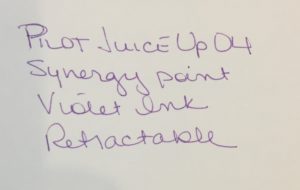 Pilot Juice Up 04
Synergy point
Violet Ink
Retractable